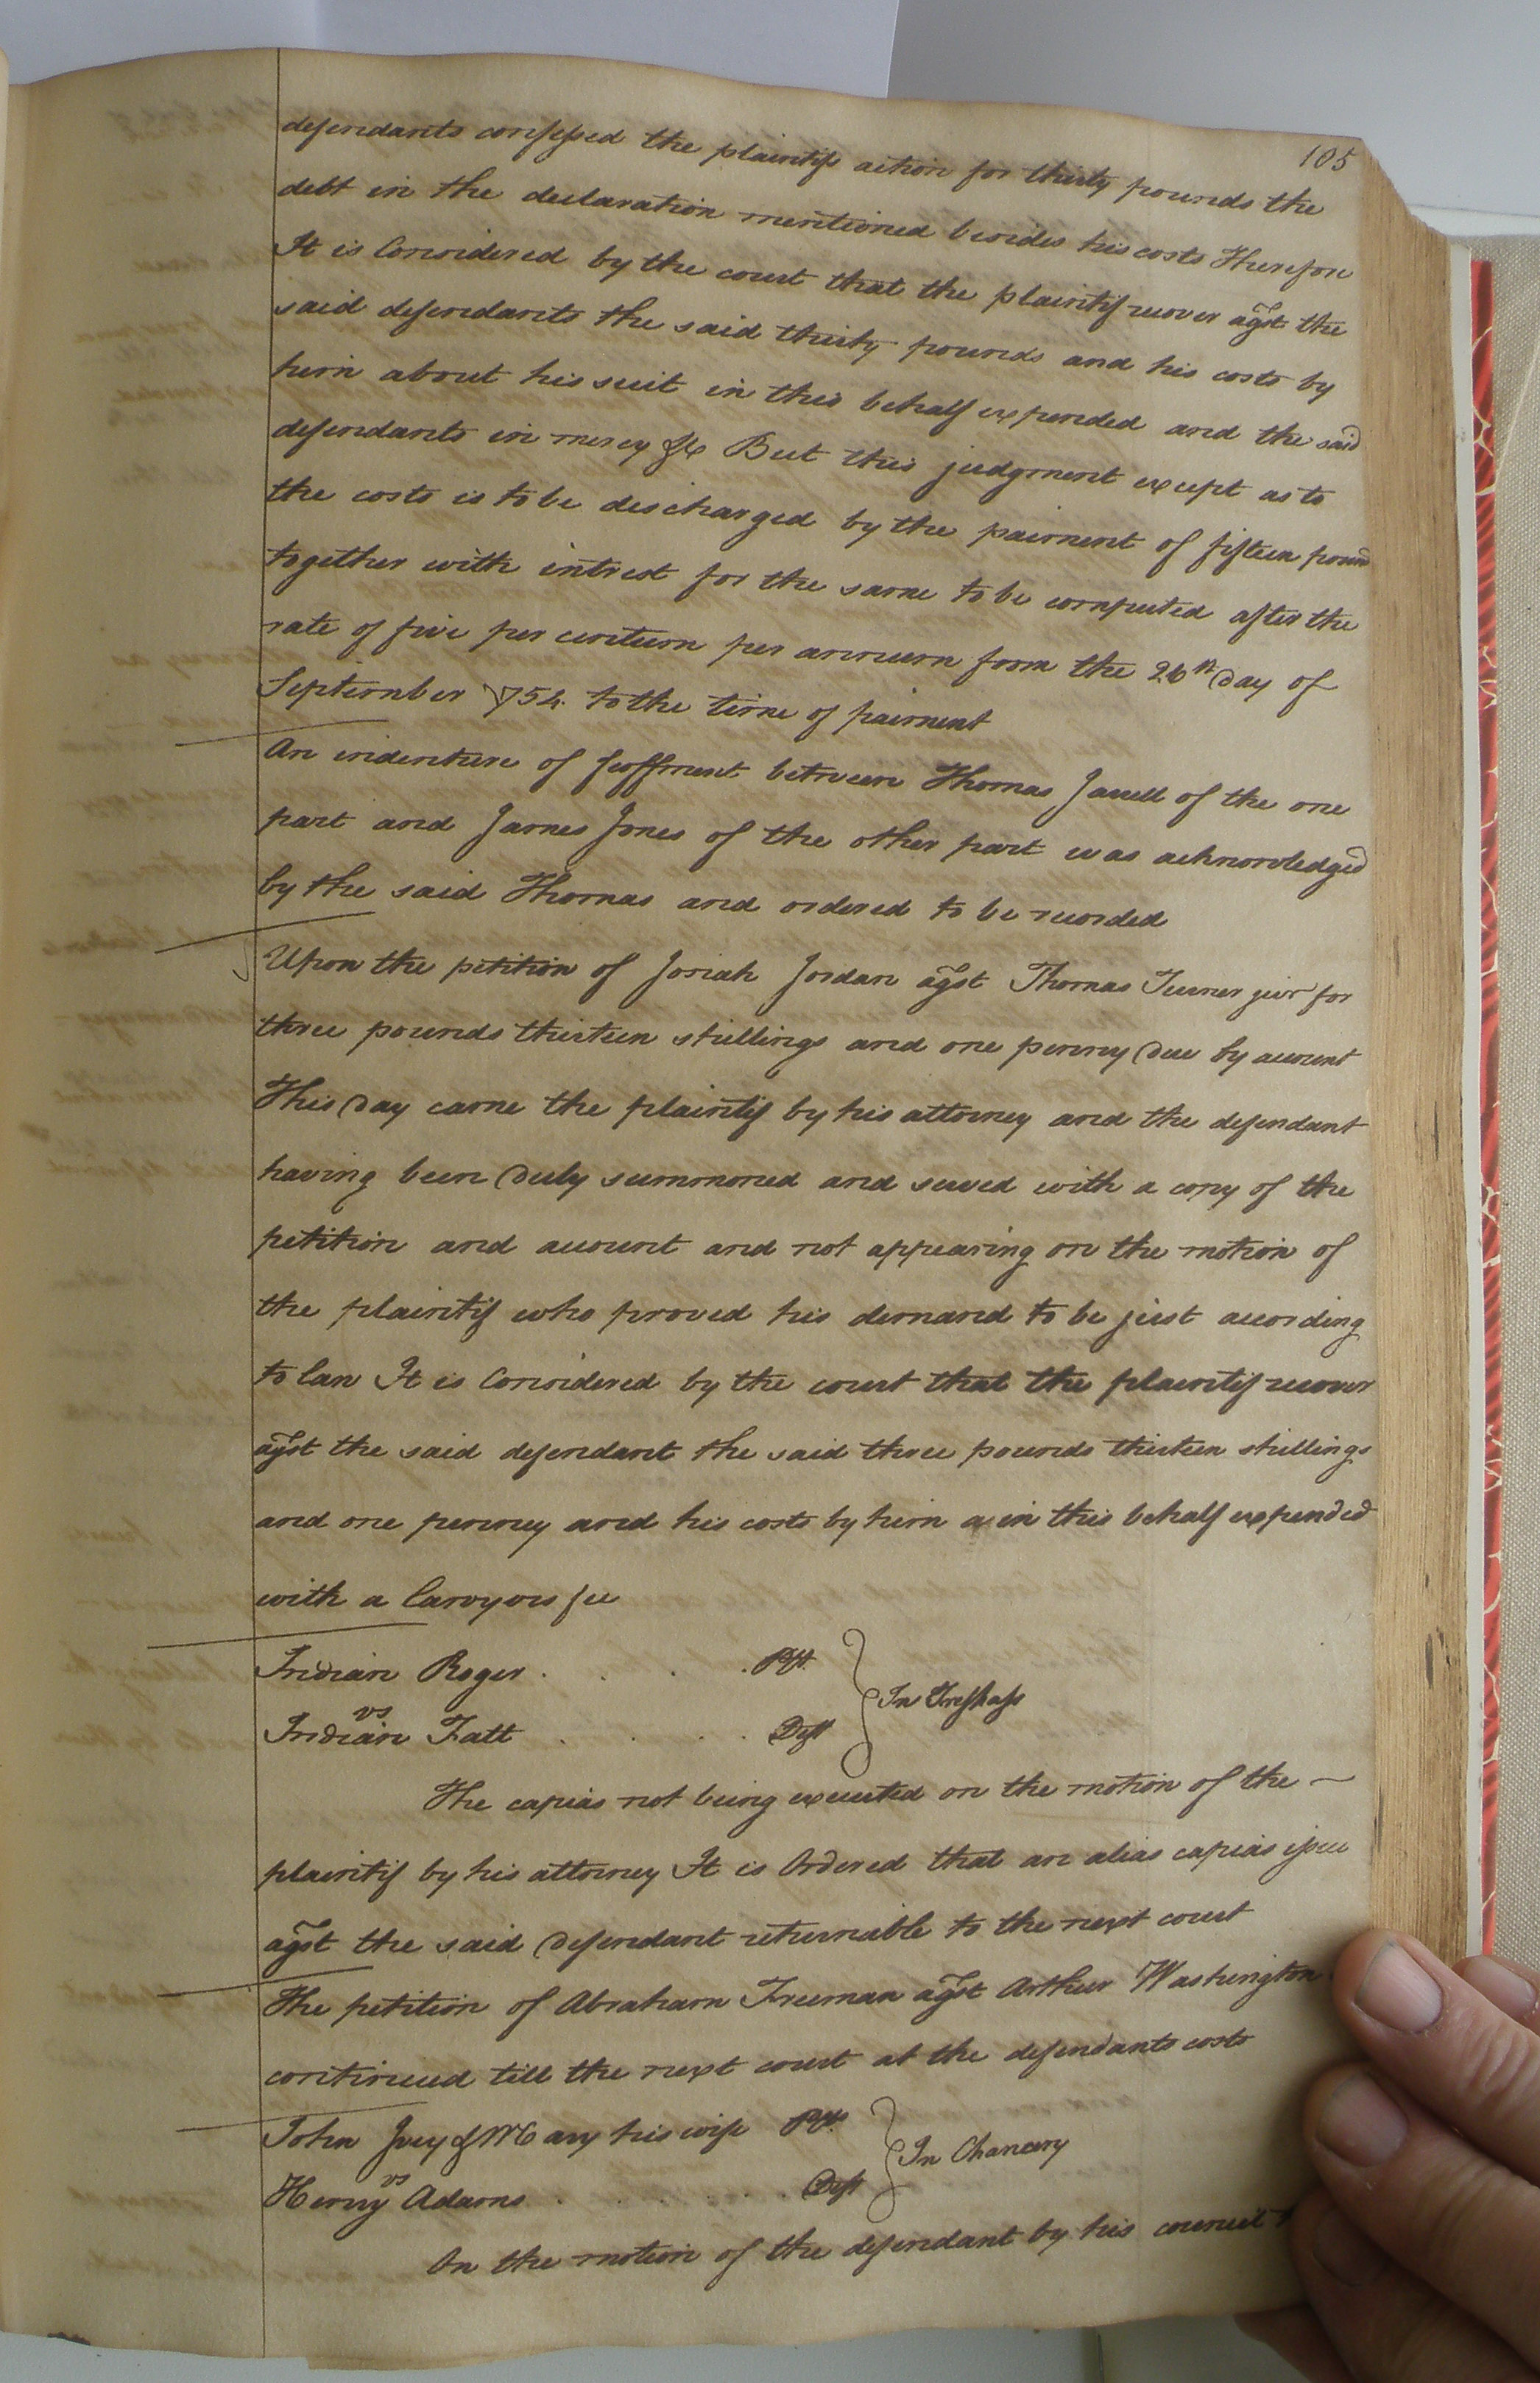 105
defendants confessed the plaintifs action for thirty pounds the
debt in the declaration mentioned besides his costs Therefore
It is Considered by the court that the plaintif recover agst the
said defendants the said thirty pounds and his costs by
him about his suit in this behalf expended and the said
defendants in mercy &c But this judgment except as to
the costs is to be discharged by the paiment of fifteen pound
together with intrest for the same to be computed after the
rate of five per centum per annum from the 26th day of
September 1754 to the time of paiment
An indenture of feoffment between Thomas Jarrell of the one
part and James Jones of the other part was acknowledged
by the said Thomas and ordered to be recorded
Upon the petition of Josiah Jordan agst Thomas Turner junr for
three pounds thirteen shillings and one penny due by account
This day came the plaintif by his attorney and the defendant
having been duly summoned and served with a copy of the
petition and account and not appearing on the motion of
the plaintif who proved his demand to be just according
to law It is Considered by the court that the plaintif recover
agst the said defendant the said three pounds thirteen shillings
and one penney and his costs by him in this behalf expended
with a lawyers fee
Indian Roger . . . . Plt.
vs } In Trespass
Indian Fatt . . . . Deft
The capias not being executed on the motion of the
plaintif by his attorney It is Ordered that an alias capias issue
agst the said defendant returnable to the next court
The petition of Abraham Freeman agst Arthur Washington
continued till the next court at the defendants costs
John Ivey & Mary his wife Plts.
vs } In Chancery
Henry Adams . . . . . . Deft
On the motion of the defendant by his council